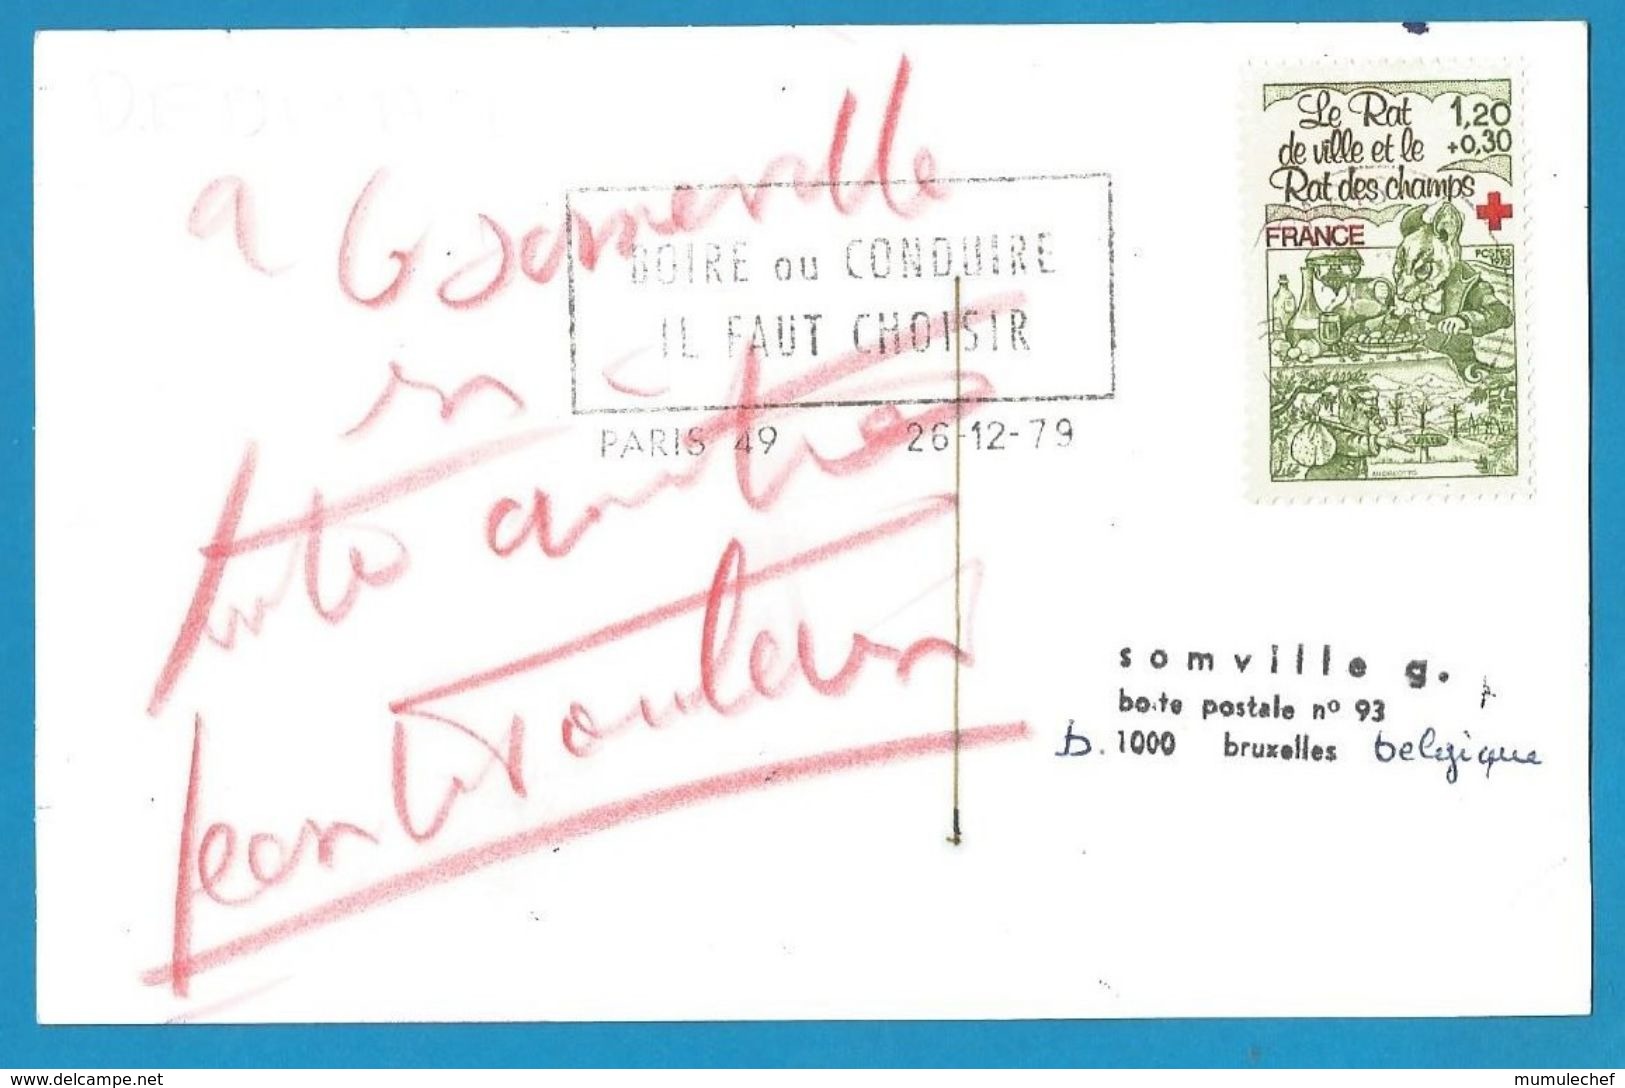 à G Someville
en
toute amitié
Jean le Poulain
BOIRE ou CONDUIRE
IL FAUT CHOISIR
PARIS 49 26-12-79
Le Rat 1,20
de ville et le +0,30
Rat des champs
FRANCE
somville g.
boite postale nº 93
b. 1000 bruxelles belgique
www.delcampe.net
mumulechef